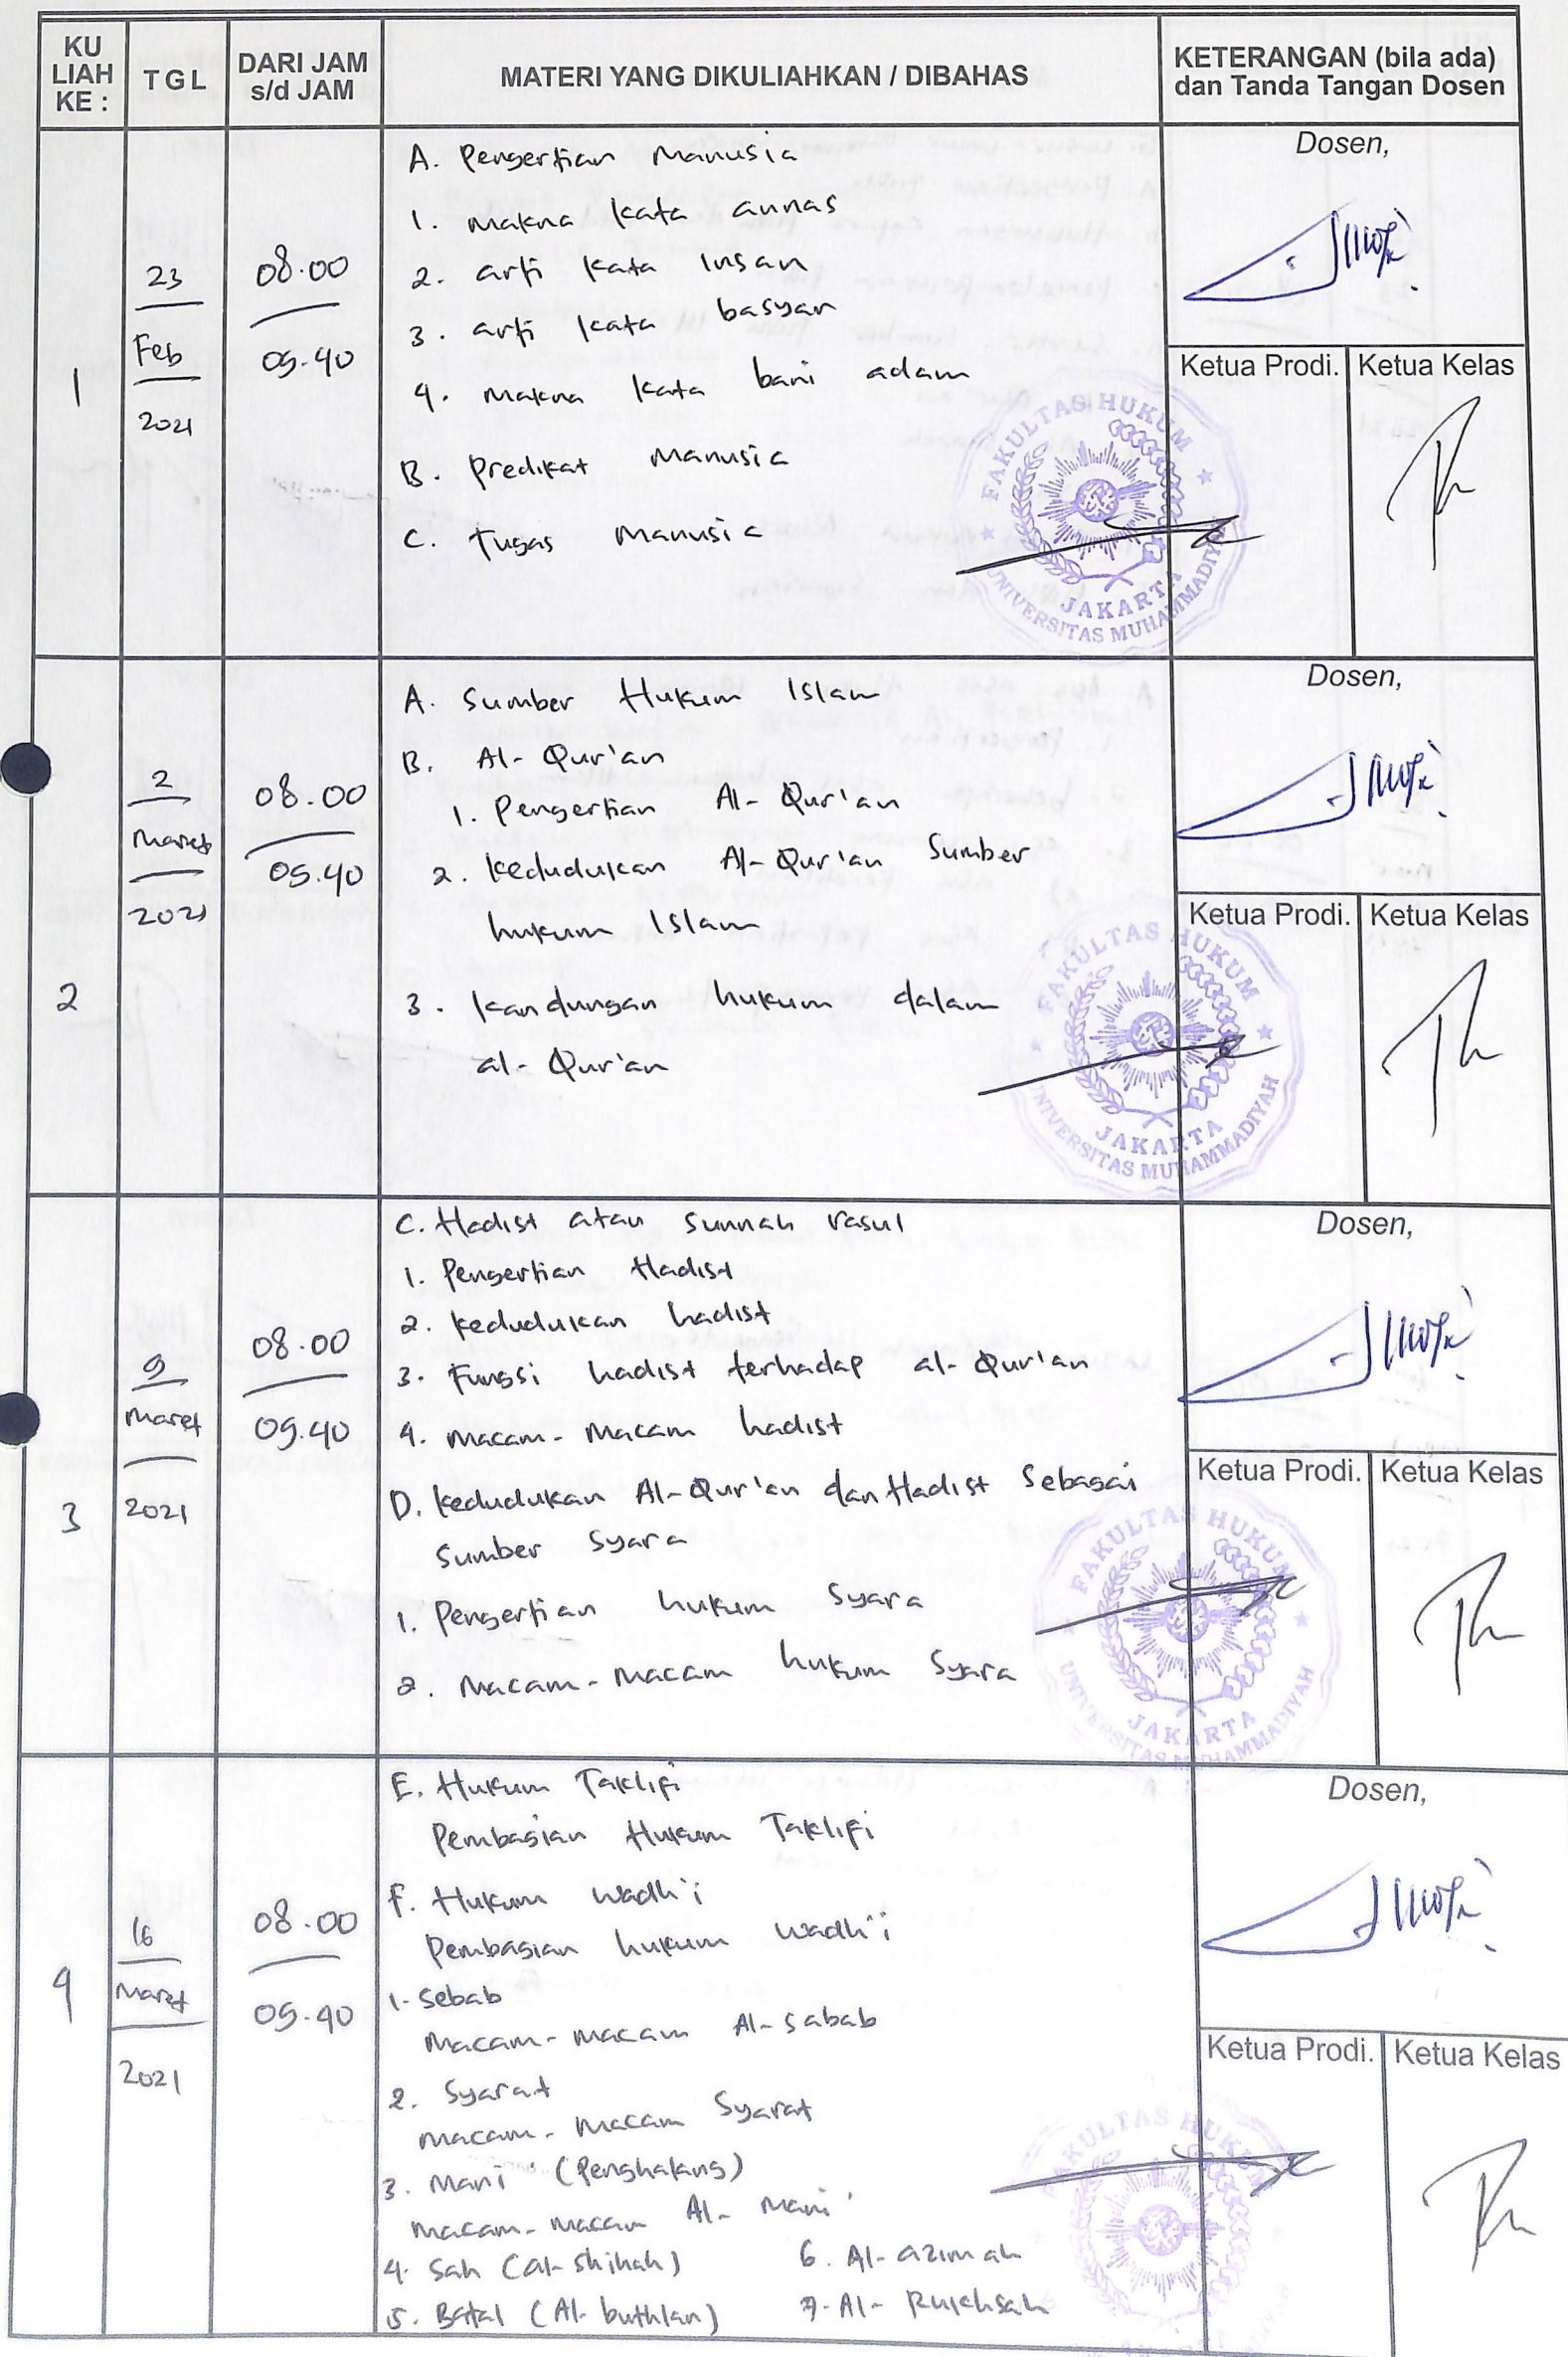 KU LIAH KE :
TGL
DARI JAM s/d JAM
MATERI YANG DIKULIAHKAN / DIBAHAS
KETERANGAN (bila ada) dan Tanda Tangan Dosen
1
23
Feb
2021
08.00
09.40
A. Pengertian Manusia
1. Makna kata annas
2. arti kata Insan
3. arti kata basyar
4. Makna kata bani adam
B. Predikat Manusia
C. Tugas Manusia
Dosen,
Ketua Prodi.
Ketua Kelas
FAKULTAS HUKUM
UNIVERSITAS MUHAMMADIYAH
JAKARTA
2
2
Maret
2021
08.00
09.40
A. Sumber Hukum Islam
B. Al-Qur'an
1. Pengertian Al-Qur'an
2. Kedudukan Al-Qur'an Sumber
hukum Islam
3. Kandungan hukum dalam
al-Qur'an
Dosen,
Ketua Prodi.
Ketua Kelas
FAKULTAS HUKUM
UNIVERSITAS MUHAMMADIYAH
JAKARTA
3
9
Maret
2021
08.00
09.40
C. Hadist atau Sunnah rasul
1. Pengertian Hadist
2. Kedudukan hadist
3. Fungsi hadist terhadap al-Qur'an
4. Macam-Macam hadist
D. Kedudukan Al-Qur'an dan Hadist Sebagai
Sumber Syara
1. Pengertian hukum Syara
2. Macam-Macam hukum Syara
Dosen,
Ketua Prodi.
Ketua Kelas
FAKULTAS HUKUM
UNIVERSITAS MUHAMMADIYAH
JAKARTA
4
16
Maret
2021
08.00
09.40
E. Hukum Taklifi
Pembagian Hukum Taklifi
F. Hukum wadh'i
Pembagian hukum wadh'i
1. Sebab
Macam-macam Al-sabab
2. Syarat
Macam-Macam Syarat
3. Mani' (Penghalang)
Macam-macam Al-Mani'
4. Sah (al-shihah)
5. Batal (Al-buthlan)
6. Al-azimah
7. Al-Rukhsah
Dosen,
Ketua Prodi.
Ketua Kelas
FAKULTAS HUKUM
JAKARTA